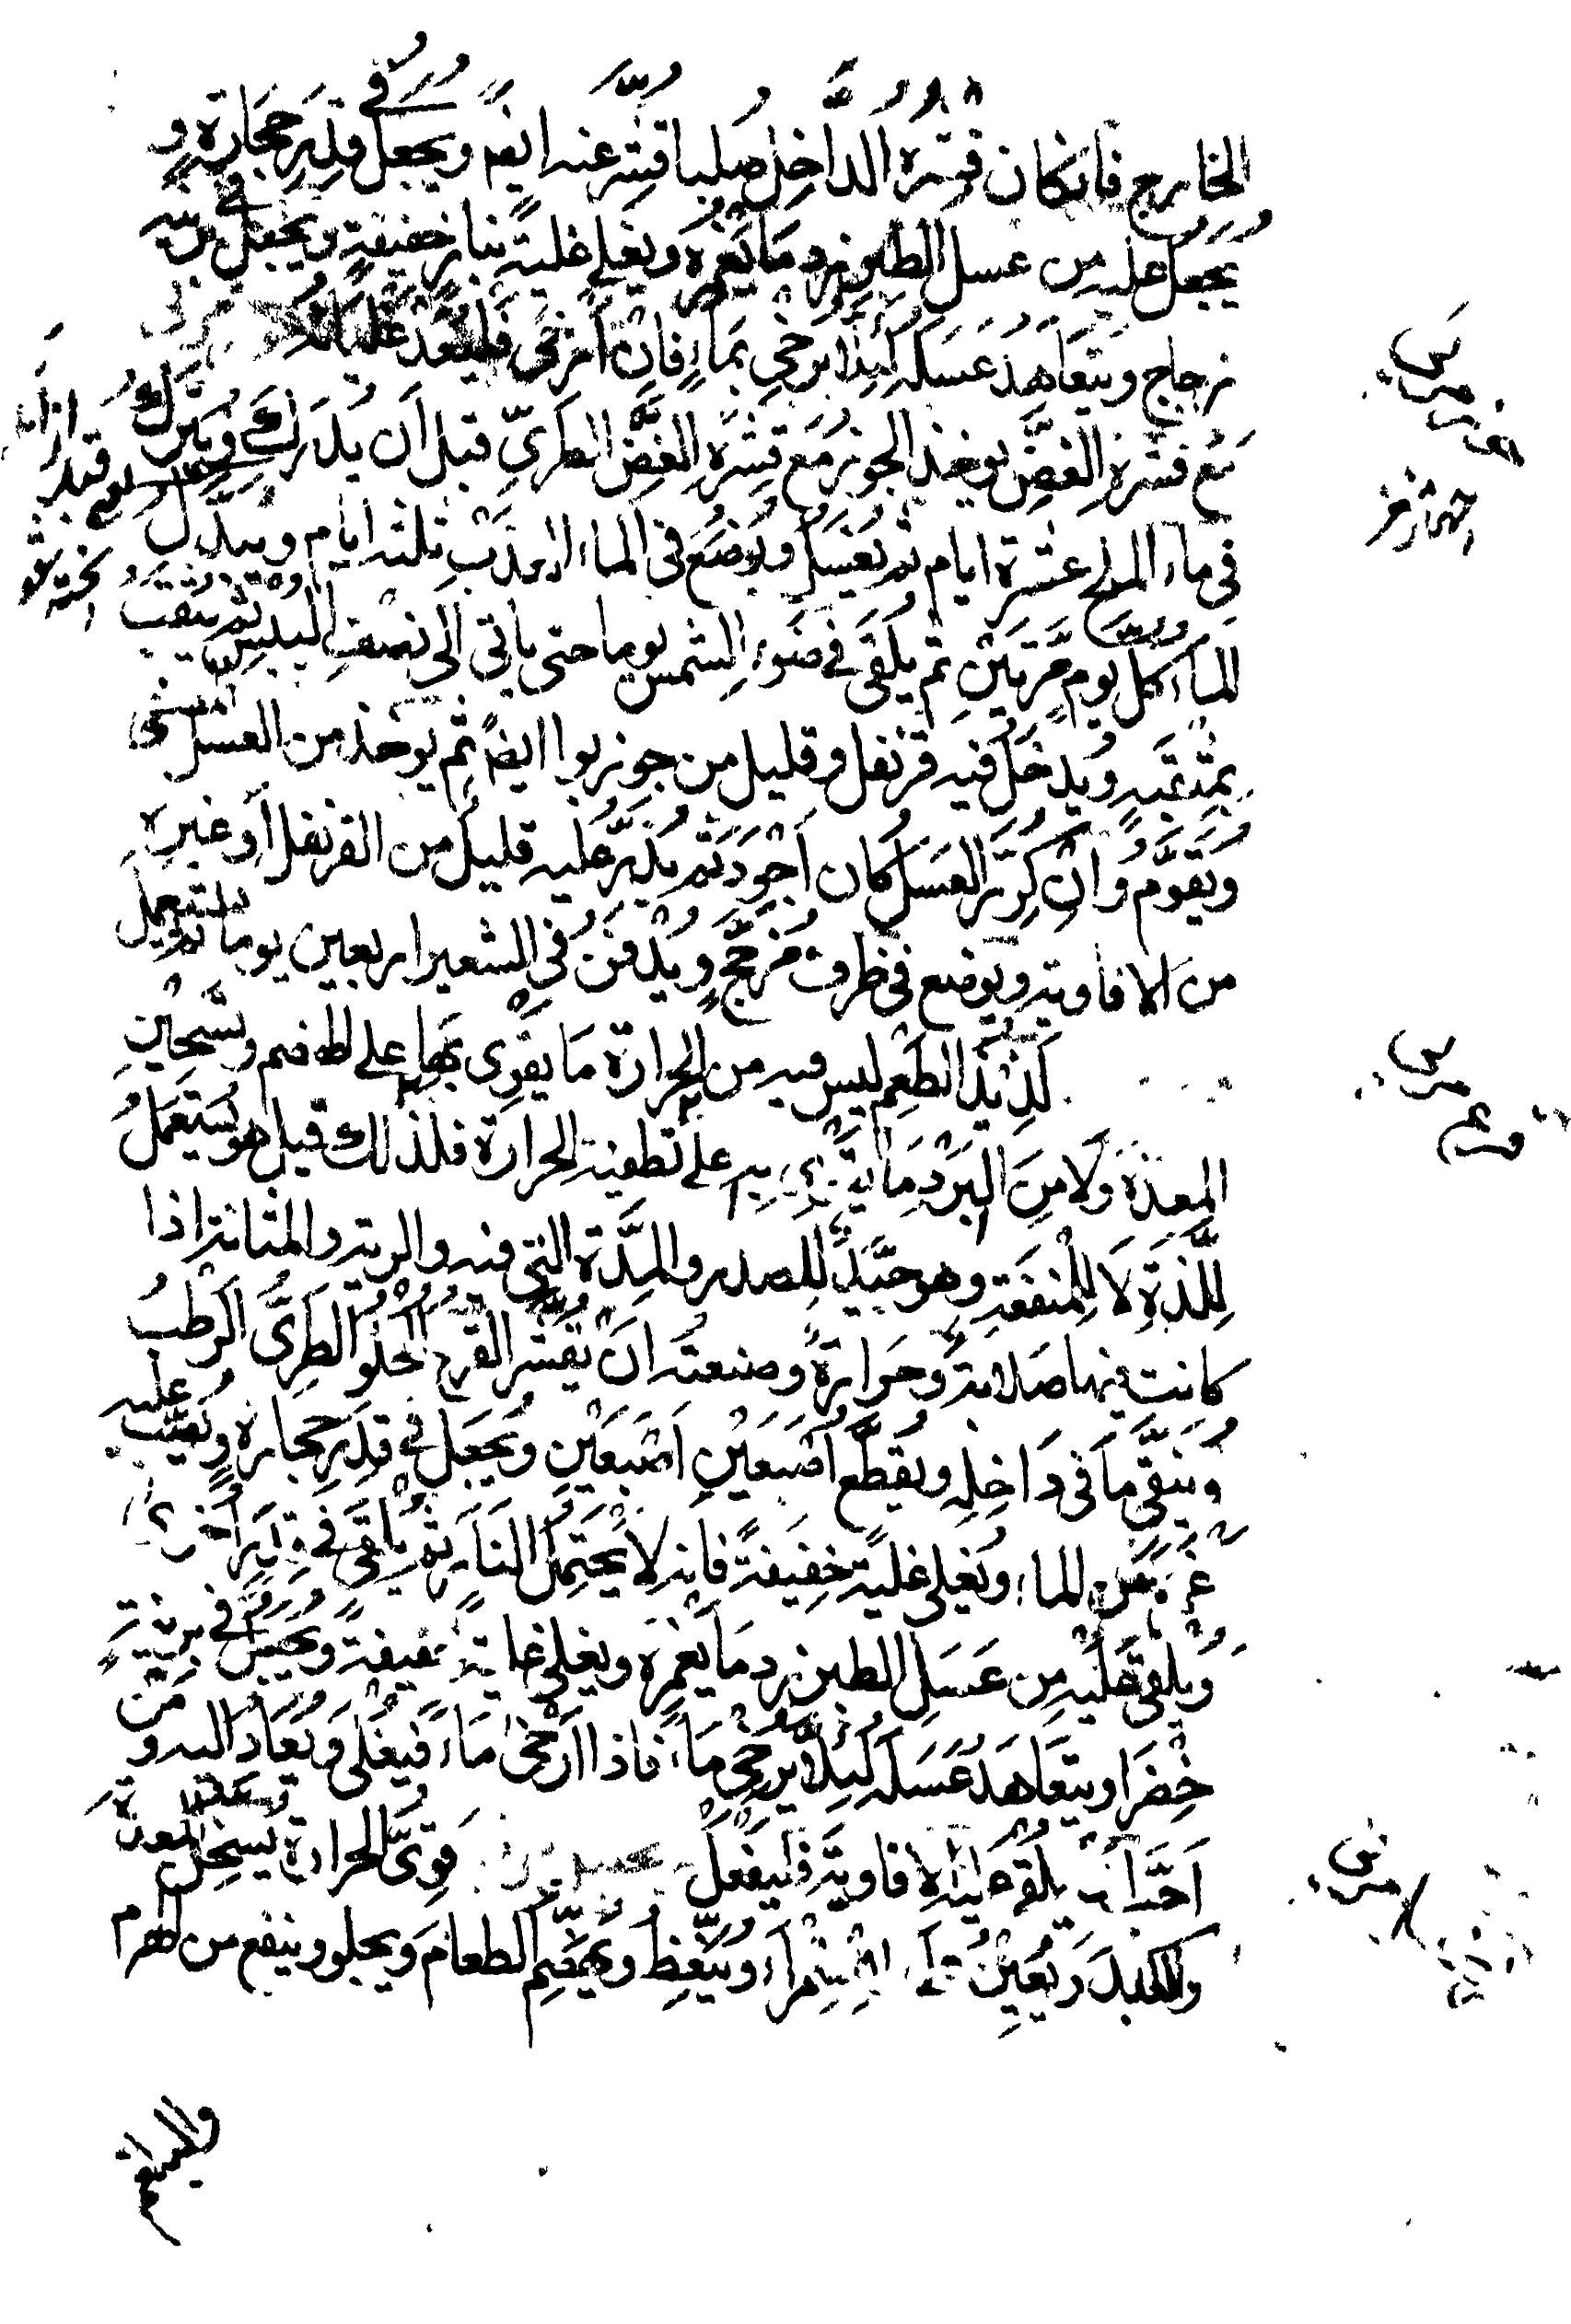 الخارج فانكان قشره الداخل صُلبا قُشّر عنه ايضً ويجعل فى قِدر حجارة و
يجعل عليه من عسل الطبرزد ما يغمره ويغلى غلية بنار خفيفة ويجعل فى
زجاج ويتعاهد عسله لئلا يرخى ماءً فان ارخى فليعد
مع قشره الغضّ يوخذ الجوز مع قشره الغضّ الطرىّ قبل أن يدرك ويترك
فى ماء الملح عشرة ايام ثم يغسل ويوضع فى الماء العذب ثلثه ايام ويبدّل
الماء كلّ يوم مرّتين ثم يلقى فى ضوء الشمس يوما حتى ياتى الى نصف اليبس ثم يثقب
بمثقبٍ ويدخل فيه قرنفل وقليل من جوزبوا ايضً ثم يوخذ من العسل
ويقوّم وان كرّر العسل كان اجود ثم يذرّ عليه قليل من القرنفل أو غيره
من الافاويه ويوضع فى ظرف مزجّجٍ ويدفن فى الشعير اربعين يوما ثم يستعمل
لذيذ الطعم ليس فيه من الحرارة ما يقوى بها على الهضم وتسخين
المعدة ولا من البرد ما يقوى به على تطفية الحرارة فلذلك قيل هو يستعمل
للّذة لا للمنفعة وهو جيّد للصدر والمدّة التى فيه والرية والمثانة اذا
كانت فيها صلابة وحرارة وصنعته ان يقشّر القرع الحلو الطرىّ الرطب
وينقّى ما فى داخله ويقطّع اصبعين اصبعين ويجعل فى قدر حجارة ويصبّ عليه
غمره من الماء ويغلى غلية خفيفة فانه لا يحتمل النار ثم يلقى فى قدر اخرى
ويلقى عليه من عسل الطبرزد ما يغمره ويغلى غلية خفيفة ويجعل فى برنية
خضرا ويتعاهد عسله لئلا يرخى ماء فاذا ارخى ماء فيغلى ويعاد اليه ومن
احبّ ان يلقى عليه الافاويه فليفعل قوىّ الحرارة يسخّن المعدة
والكبد ويعين على الاستمراء وينعّظ ويهضّم الطعام ويجلو وينفع من الهرم
والبلغم